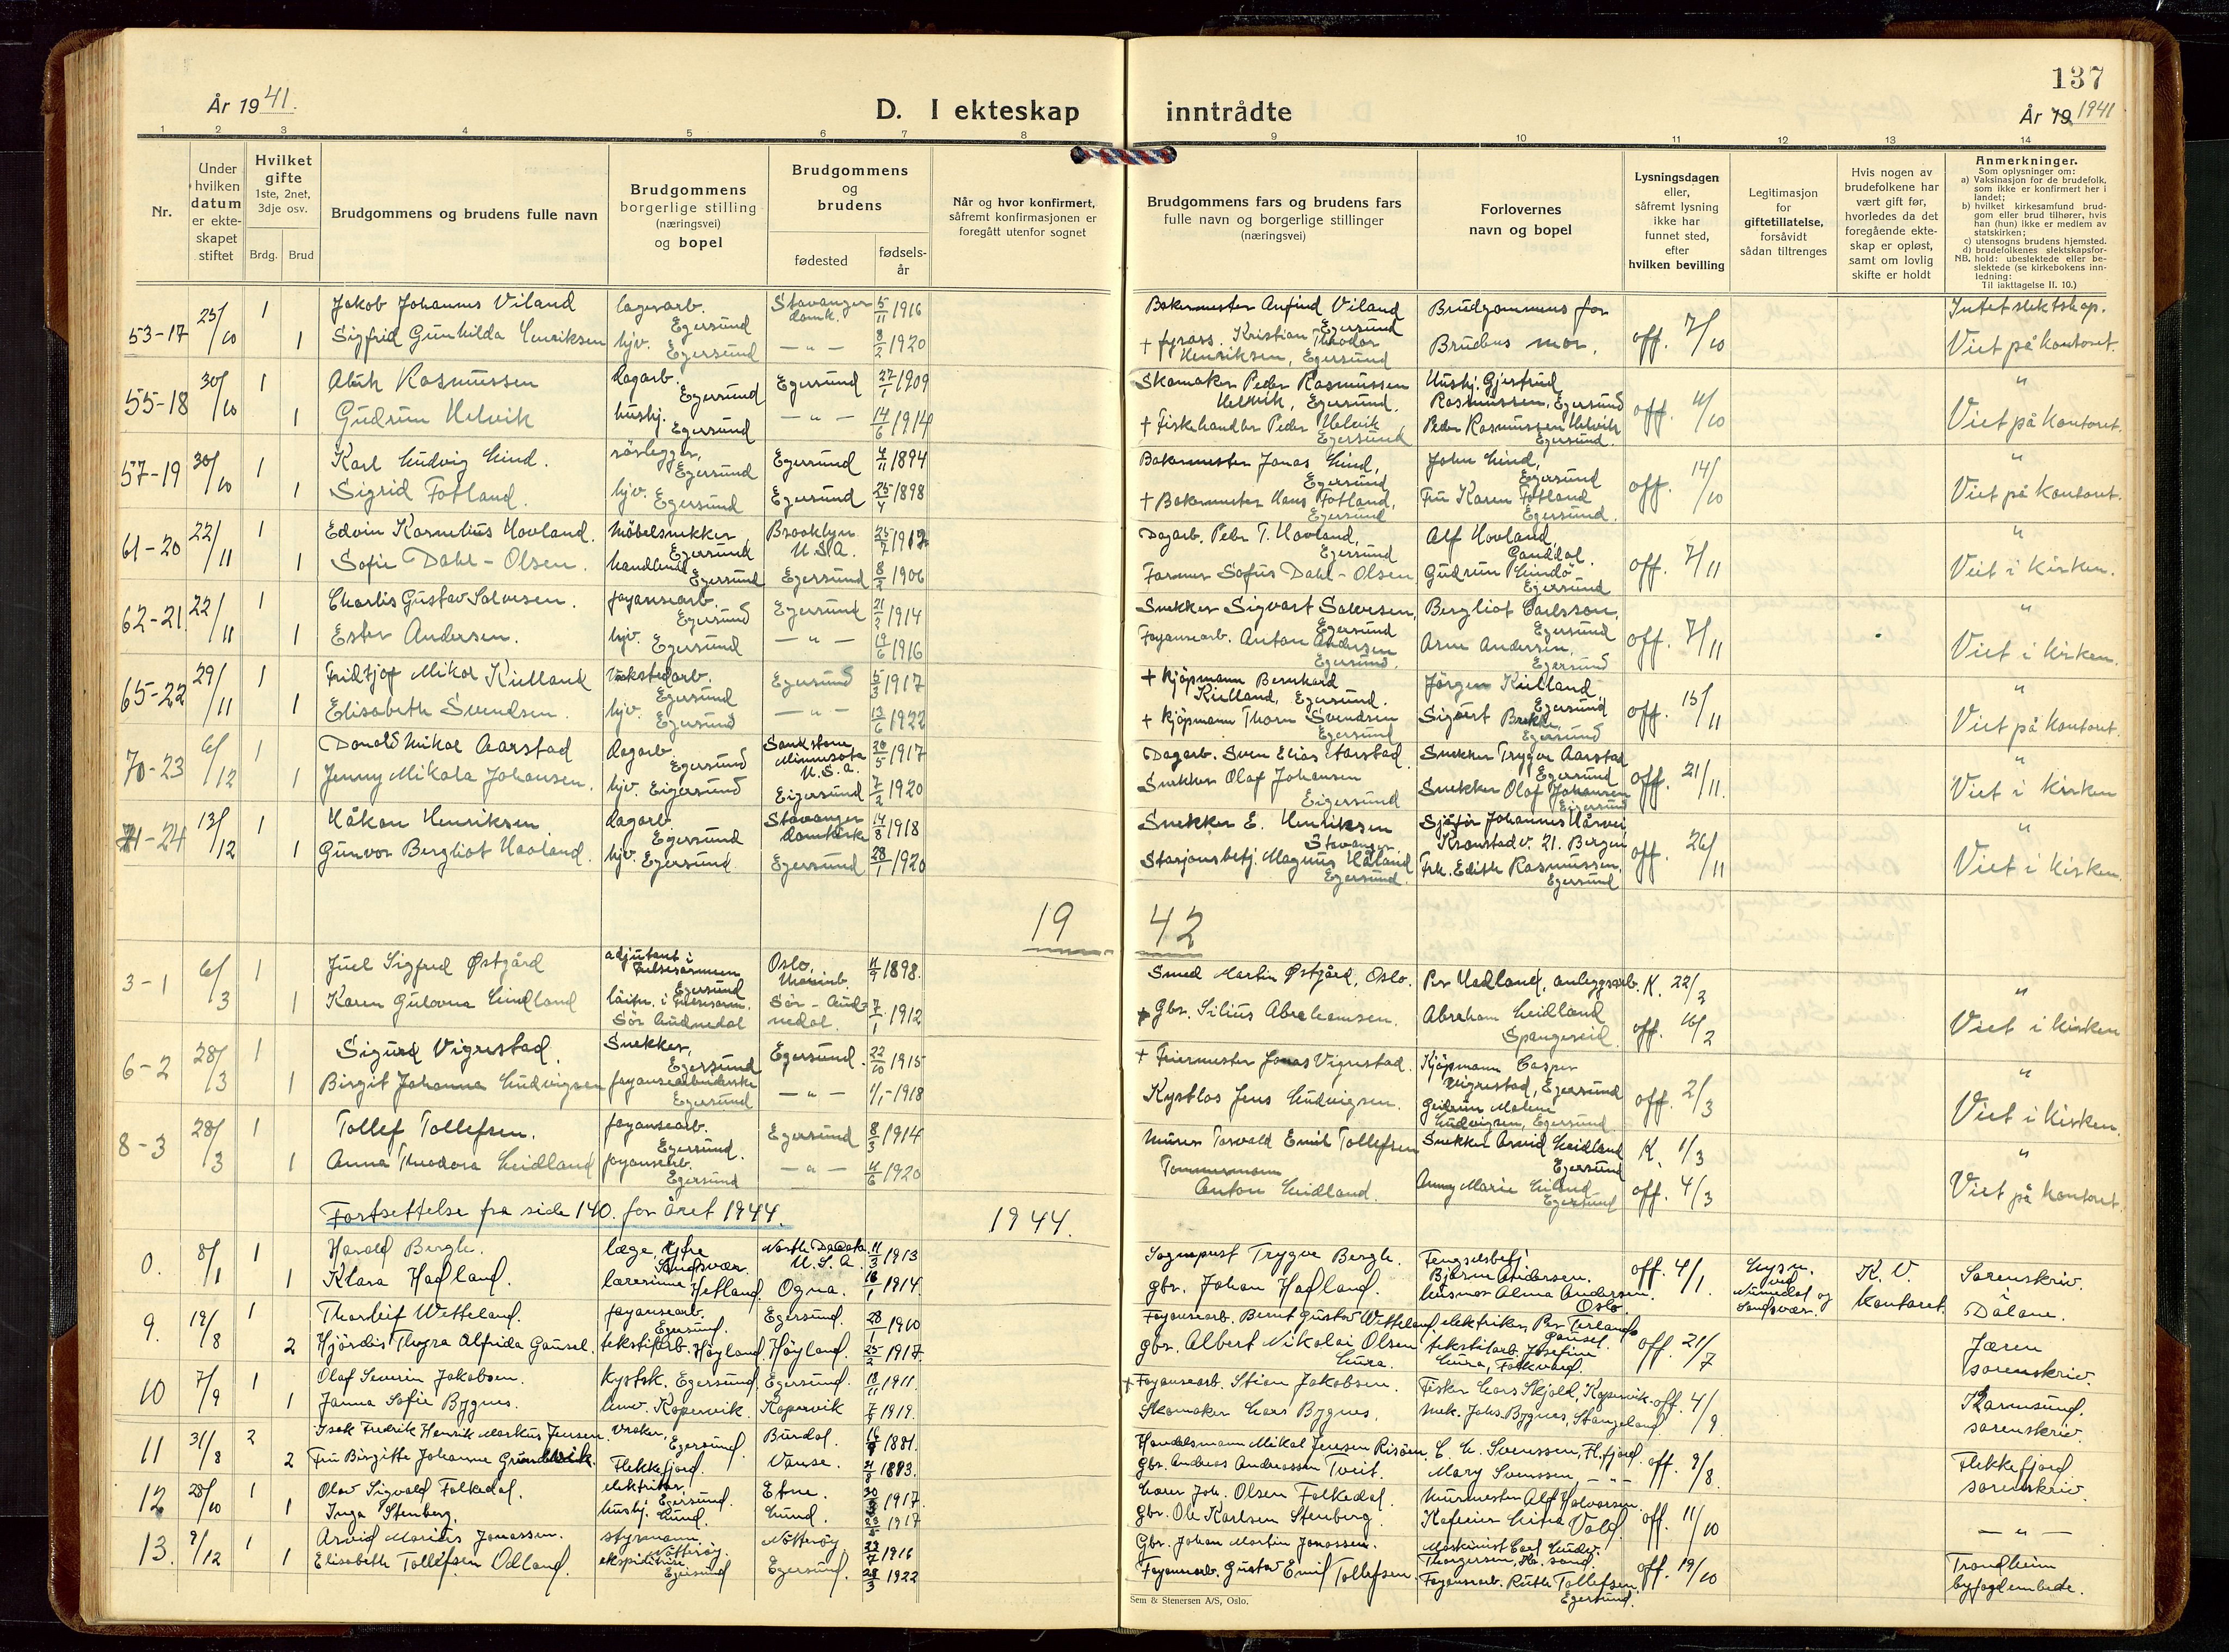 137
År 1941.
D. I ekteskap inntrådte
År 19 1941
1 2 3 4 5 6 7 8 9 10 11 12 13 14
Nr.
Under hvilken datum er ekteskapet stiftet
Hvilket gifte
1ste, 2net, 3dje osv.
Brdg. Brud
Brudgommens og brudens fulle navn
Brudgommens borgerlige stilling (næringsvei) og bopel
Brudgommens og brudens
fødested
fødselsår
Når og hvor konfirmert, såfremt konfirmasjonen er foregått utenfor sognet
Brudgommens fars og brudens fars fulle navn og borgerlige stillinger (næringsvei)
Forlovernes navn og bopel
Lysningsdagen eller, såfremt lysning ikke har funnet sted, efter hvilken bevilling
Legitimasjon for giftetillatelse, forsåvidt sådan tiltrenges
Hvis nogen av brudefolkene har vært gift før, hvorledes da det foregående ekteskap er opløst, samt om lovlig skifte er holdt
Anmerkninger.
Som oplysninger om:
a) Vaksinasjon for de brudefolk, som ikke er konfirmert her i landet;
b) hvilket kirkesamfund brudgom eller brud tilhører, hvis han (hun) ikke er medlem av statskirken;
c) utensogns brudens hjemsted.
d) brudefolkenes slektskapsforhold: ubeslektede eller beslektede (se kirkebokens innledning:
NB. Til iakttagelse II. 10.)
53-17 25/10 1 Jakob Johannes Viland lagerarb. Egersund Stavanger domk. 5/11 1916 Bakermester Anfind Viland Egersund Brudgommens far off. 7/10 Intet slektskap.
1 Sigfrid Gunhilda Henriksen hjv. Egersund — " — 8/2 1920 + fyrass. Kristian Theodor Henriksen, Egersund Brudens mor. Viet på kontoret.
55-18 30/10 1 Rasmussen dagarb. Egersund Egersund 27/1 1909 Skomaker Peder Rasmussen Helvik, Egersund. Hushj. Gjertrud Rasmussen, Egersund off. 11/10 "
1 Gudrun Helvik hushj. Egersund — " — 14/6 1914 + Fiskehandler Peder Helvik Egersund Peder Rasmussen Helvik Egersund. Viet på kontoret.
57-19 30/10 1 Karl Ludvig Lind. rørlegger, Egersund Egersund 4/11 1894 Bakermester Jonas Lind, Egersund John Lind, Egersund off. 14/10 "
1 Sigrid Fotland. hjv. Egersund Egersund 25/4 1898 + Bakermester Hans Fotland, Egersund Fru Karen Fotland Egersund. Viet på kontoret.
61-20 22/11 1 Edvin Kornelius Hovland. Møbelsnekker Egersund Brooklyn U.S.A. 25/7 1912 Dagarb. Peder T. Hovland, Egersund Alf Hovland, Ganddal. off. 7/11 "
1 Sofie Dahl-Olsen. handlende Egersund Egersund 8/2 1906 Farmer Sofus Dahl-Olsen Gudrun Lindø Egersund Viet i kirken.
62-21 22/11 1 Charlis Gustav Salvesen. fayansearb. Egersund Egersund 21/2 1914 Snekker Sigvart Salvesen, Egersund Bergliot Carlsson, Egersund off. 7/11 "
1 Ester Andersen. hjv. Egersund — " — 19/6 1916 Fayansearb. Anton Andersen Egersund. Arne Andersen, Egersund Viet i kirken.
65-22 29/11 1 Fridtjof Mikal Kielland Verkstedarb. Egersund Egersund 5/3 1917 + Kjøpmann Bernhard Kielland, Egersund. Jörgen Kielland, Egersund off. 15/11 "
1 Elisabeth Svendsen. hjv. Egersund — " — 13/6 1922 + Kjøpmann Thorn Svendsen Egersund Sigvert Brekke, Egersund Viet på kontoret.
70-23 6/12 1 Donald Mikal Aarstad dagarb. Egersund Sandstone Minnesota U.S.A. 20/5 1917 Dagarb. Sven Elias Aarstad. Snekker Trygve Aarstad Egersund off. 21/11. "
1 Jenny Mikala Johansen. hjv. Eigersund Eigersund 7/2 1920 Snekker Olaf Johansen Eigersund Snekker Olaf Johansen Eigersund Viet i kirken
71-24 13/12 1 Håkon Henriksen dagarb. Egersund Stavanger domkirke 14/8 1918 Snekker E. Henriksen Stavanger. Sjåfør Johannes Kronstad v. 21. Bergen off. 26/11 "
1 Gunvor Bergliot Haaland. hjv. Egersund. Egersund 28/1 1920 Stasjonsbetj. Magnus Håland Egersund. Frk. Edith Rasmussen. Egersund Viet i kirken.
19 42
3-1 6/3 1 Juel Sigfred Østgård adjutant i Frelsesarmeen Egersund Oslo, 11/9 1898. Smed Martin Østgård, Oslo. Per Hadland, anleggsarb. K. 22/2 "
1 Karen Gulovna Lindland løitn. i Frelsesarm. Sør Audnedal Sør-Audnedal. 7/1 1912 + Gbr. Silius Abrahamsen. Abraham Leidland Spangereid. off. 16/2 Viet i kirken
6-2 28/3 1 Sigurd Vigrestad. Snekker, Egersund Egersund. 22/10 1915 + Feiermester Jonas Vigrestad. Kjøpmann Casper Vigrestad, Egersund off. 2/3 "
1 Birgit Johanna Ludvigsen fayansearbeiderske Egersund — " — 1/1-1918 Kystlos Jens Ludvigsen. Gudrun Malene Ludvigsen, Egersund Viet i kirken.
8-3 28/3 1 Tollef Tollefsen. fayansearb. Egersund. Egersund 8/3 1914 Murer Torvald Emil Tollefsen Snekker Arvid Leidland Egersund K. 1/3 "
1 Anna Theodora Leidland fayansearb. Egersund — " — 4/6 1920 Tømmermann Anton Leidland. Anny Marie Eiland Egersund off. 4/3 Viet på kontoret.
Fortsettelse fra side 140. for året 1944. 1944.
0. 8/1 1 Harald Bergh. læge, Sandsvær. North Dakota U.S.A. 11/3 1913 Sogneprest Trygve Bergh. Fengselsbetj. Bjarne Andersen. off. 4/1. Lysn. ved Numedal og Sandsvær. K. V. Kontoret. Sorenskriv. i
1 Klara Hadland. lærerinne Hetland Ogna. 16/1 1914. gbr. Johan Hadland. husmor Alma Andersen. Oslo. Dalane.
9. 19/8 1 Thorleif Wetteland. fayansearb. Egersund. Egersund. 28/1 1910 Fayansearb. Bernt Gustav Wetteland elektriker Per Terland off. 21/7 Jæren
2 Hjördis Thyra Alfrida Gausel. tekstilarb. Høyland. Høyland. 25/2 1917. gbr. Albert Nikolai Olsen Lura. tekstilarb. Josefine Lura, Folkvord. sorenskriv.
10 7/9 1 Olaf Severin Jakobsen. Kystsk. Egersund Egersund. 18/11 1911. + Fayansearb. Stian Jakobsen. Fisker Lars Skjold, Kopervik off. 4/9 Karmsund.
1 Janna Sofie Bygnes. Kopervik. Kopervik 7/5 1919. Skomaker Lars Bygnes. mek. Johs. Bygnes, Stangeland sorenskriv.
11 31/8 2 Isak Fredrik Henrik Markus Jensen. Vraker, Egersund. 1881. Handelsmann Mikal Jensen Risöen. Svenssen, Fl.fjord. off. 9/8. Flekkefjord
2 Fru Birgitte Johanne Grundevik. Flekkefjord. Vanse. 1883. gbr. Andreas Andreassen Tveit. Mary Svenssen, — " — sorenskriv.
12 28/10 1 Olav Sigvald Folkedal. elektriker, Egersund. Etne. 1917. Lærer Joh. Olsen Folkedal. Murmester Alf Halvorsen. off. 11/10 — " —
1 Inga Stenberg. hushj. Lund. Lund. 1917 gbr. Ole Karlsen Stenberg.
13. 9/12 1 Arvid Marius Jonassen. styrmann Nøtterøy Nøtterøy 22/7 1916 Gbr. Johan Martin Jonassen. Maskinist Carl Ludv. Thorgersen, off. 19/10 Trondheim
1 Elisabeth Tollefsen Odland. ekspeditrise. Egersund Egersund. 28/3 1922 Fayansearb. Gustav Emil Tollefsen. Fayansearb. Ruth Tollefsen. Egersund. byfogdembede.
Sem & Stenersen A/S, Oslo.